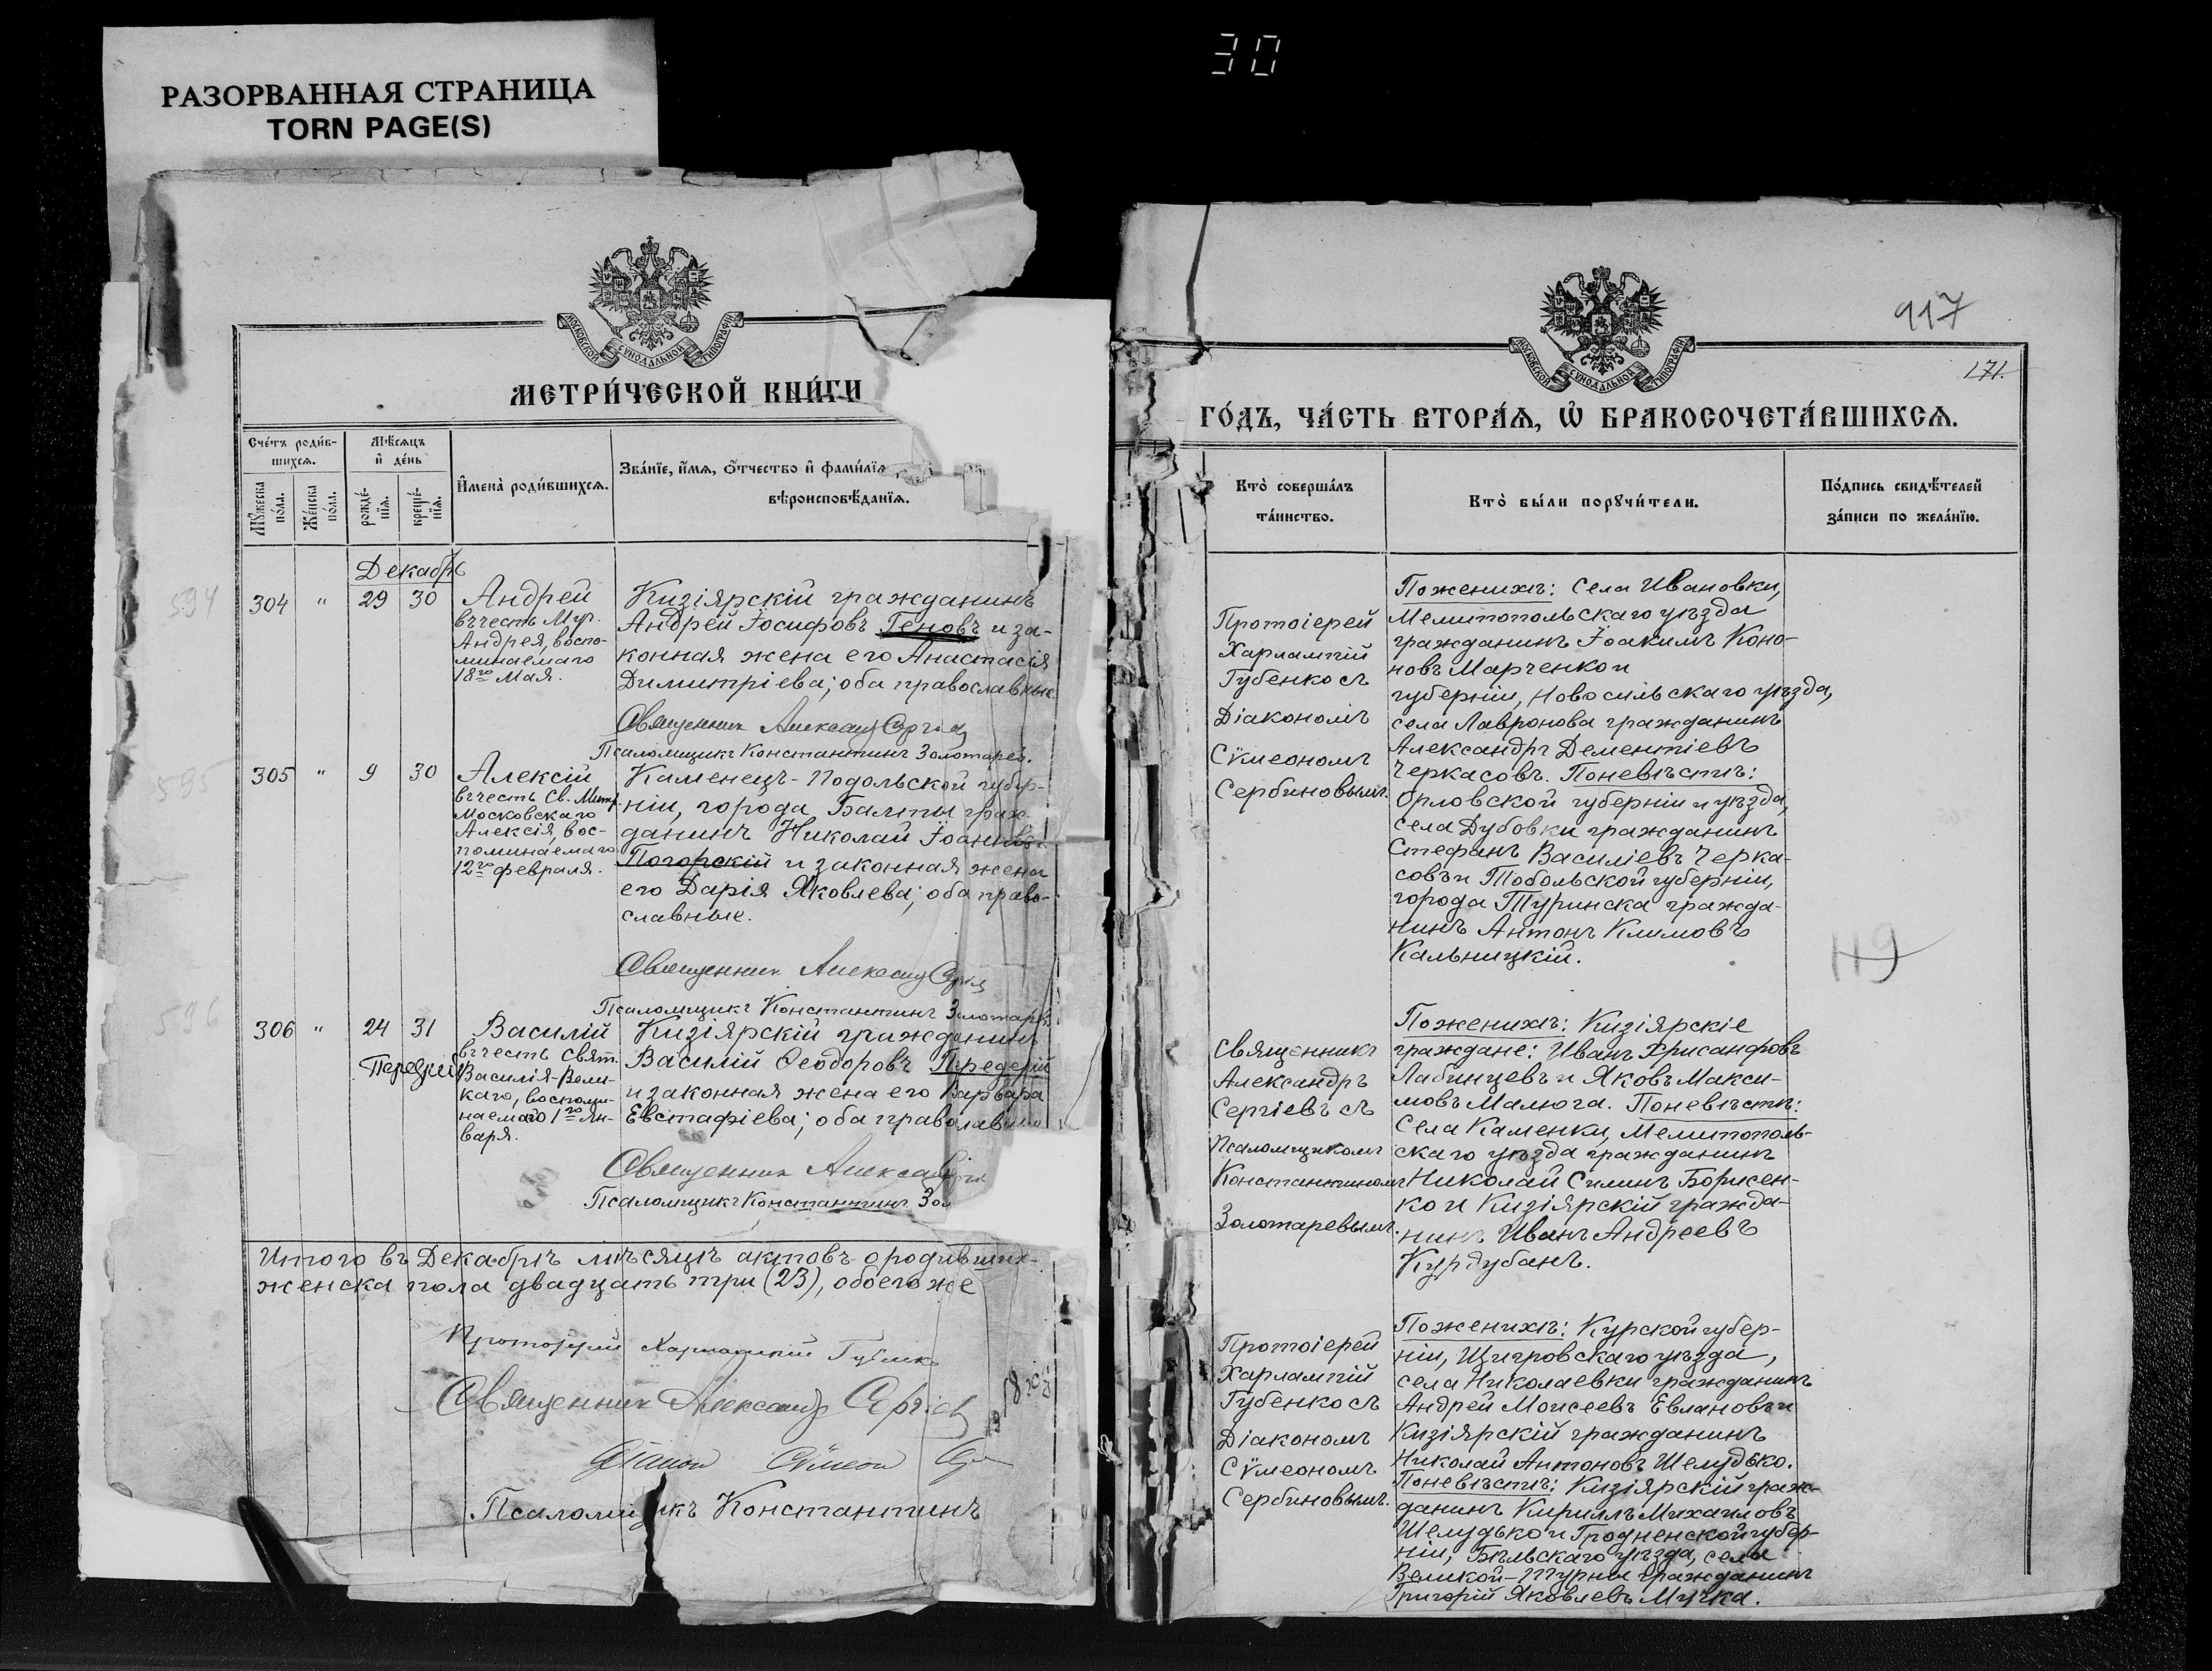 РАЗОРВАННАЯ СТРАНИЦА
TORN PAGE(S)
30
МОСКОВСКОЙ СѴНОДАЛЬНОЙ ТИПОГРАФІИ
МЕТРИ́ЧЕСКОЙ КНИ́ГИ
Сче́тъ роди́в-
шихсѧ.
Мѣ́сѧцъ
и҆ де́нь
И҆мена̀ роди́вшихсѧ.
Зва́нїе, и҆́мѧ, ѻ҆́тчество и҆ фами́лїѧ
вѣроисповѣ́данїѧ.
Мꙋ́жеска
по́ла.
Же́нска
по́ла.
рожде́-
нїѧ.
креще́-
нїѧ.
Декабрь
594
304 " 29 30
Андрей
въ честь Муч.
Андрея, воспо-
минаемаго
18го Мая.
Кизіярскій гражданинъ
Андрей Іосифовъ Геновъ и за-
конная жена его Анастасія
Димитріева; оба православные.
Священник Александр Сергіев
Псаломщикъ Константинъ Золотарев.
595
305 " 9 30
Алексій
въ честь Св. Митр.
Московскаго
Алексія, вос-
поминаемаго
12го февраля.
Каменецъ-Подольской губер-
ніи, города Балты граж-
данинъ Николай Іоаннов
Погорскій и законная жена
его Дарія Яковлева; оба право-
славные.
Священник Александр Сергіев
Псаломщикъ Константинъ Золотарев
596
306 " 24 31
Передрий
Василій
въ честь Свят.
Василія-Вели-
каго, воспоми-
наемаго 1го Ян-
варя.
Кизіярскій гражданинъ
Василій Ѳеодоровъ Передерій
и законная жена его Варвара
Евстафіева; оба православные
Священник Александр Сергіев
Псаломщикъ Константинъ Зол
Итого въ Декабрѣ мѣсяцѣ актовъ о родивших-
женска пола двадцать три (23), обоего же
Протоіерей Харлампій Губенко
Священник Александр Сергіев
Діакон Сѵмеон
Псаломщикъ Константинъ
917
171.
МОСКОВСКОЙ СѴНОДАЛЬНОЙ ТИПОГРАФІИ
ГО́ДЪ, ЧА́СТЬ ВТОРА́Ѧ, Ѡ҆ БРАКОСОЧЕТА́ВШИХСѦ.
Кто̀ соверша́лъ
та́инство.
Кто̀ бы́ли порꙋчи́тели.
По́дпись свидѣ́телей
за́писи по жела́нїю.
Протоіерей
Харлампій
Губенко съ
Діакономъ
Сѵмеономъ
Сербиновымъ.
По женихѣ: села Ивановки,
Мелитопольскаго уѣзда
гражданинъ Іоакимъ Коно-
новъ Марченко и
губерніи, Новосильскаго уѣзда,
села Лавронова гражданинъ
Александръ Дементіевъ
Черкасовъ. По невѣстѣ:
Орловской губерніи и уѣзда,
села Дубовки гражданинъ
Стефанъ Василіевъ Черка-
совъ и Тобольской губерніи,
города Туринска гражда-
нинъ Антонъ Климовъ
Кальницкій.
Н9
Священникъ
Александръ
Сергіевъ съ
Псаломщикомъ
Константиномъ
Золотаревымъ.
По женихѣ: Кизіярскіе
граждане: Иванъ Хрисанфовъ
Лабинцевъ и Яковъ Макси-
мовъ Малюга. По невѣстѣ:
Села Каменки, Мелитополь-
скаго уѣзда гражданинъ
Николай Силинъ Борисен-
ко и Кизіярскій гражда-
нинъ Иванъ Андреевъ
Курдубанъ.
Протоіерей
Харлампій
Губенко съ
Діакономъ
Сѵмеономъ
Сербиновымъ.
По женихѣ: Курской губер-
ніи, Щигровскаго уѣзда,
села Николаевки гражданинъ
Андрей Моисеевъ Евлановъ и
Кизіярскій гражданинъ
Николай Антоновъ Шелудько.
По невѣстѣ: Кизіярскій граж-
данинъ Кириллъ Михаиловъ
Шелудько и Гродненской губер-
ніи, Бѣльскаго уѣзда, села
Великой-Турны гражданинъ
Григорій Яковлевъ Мучка.